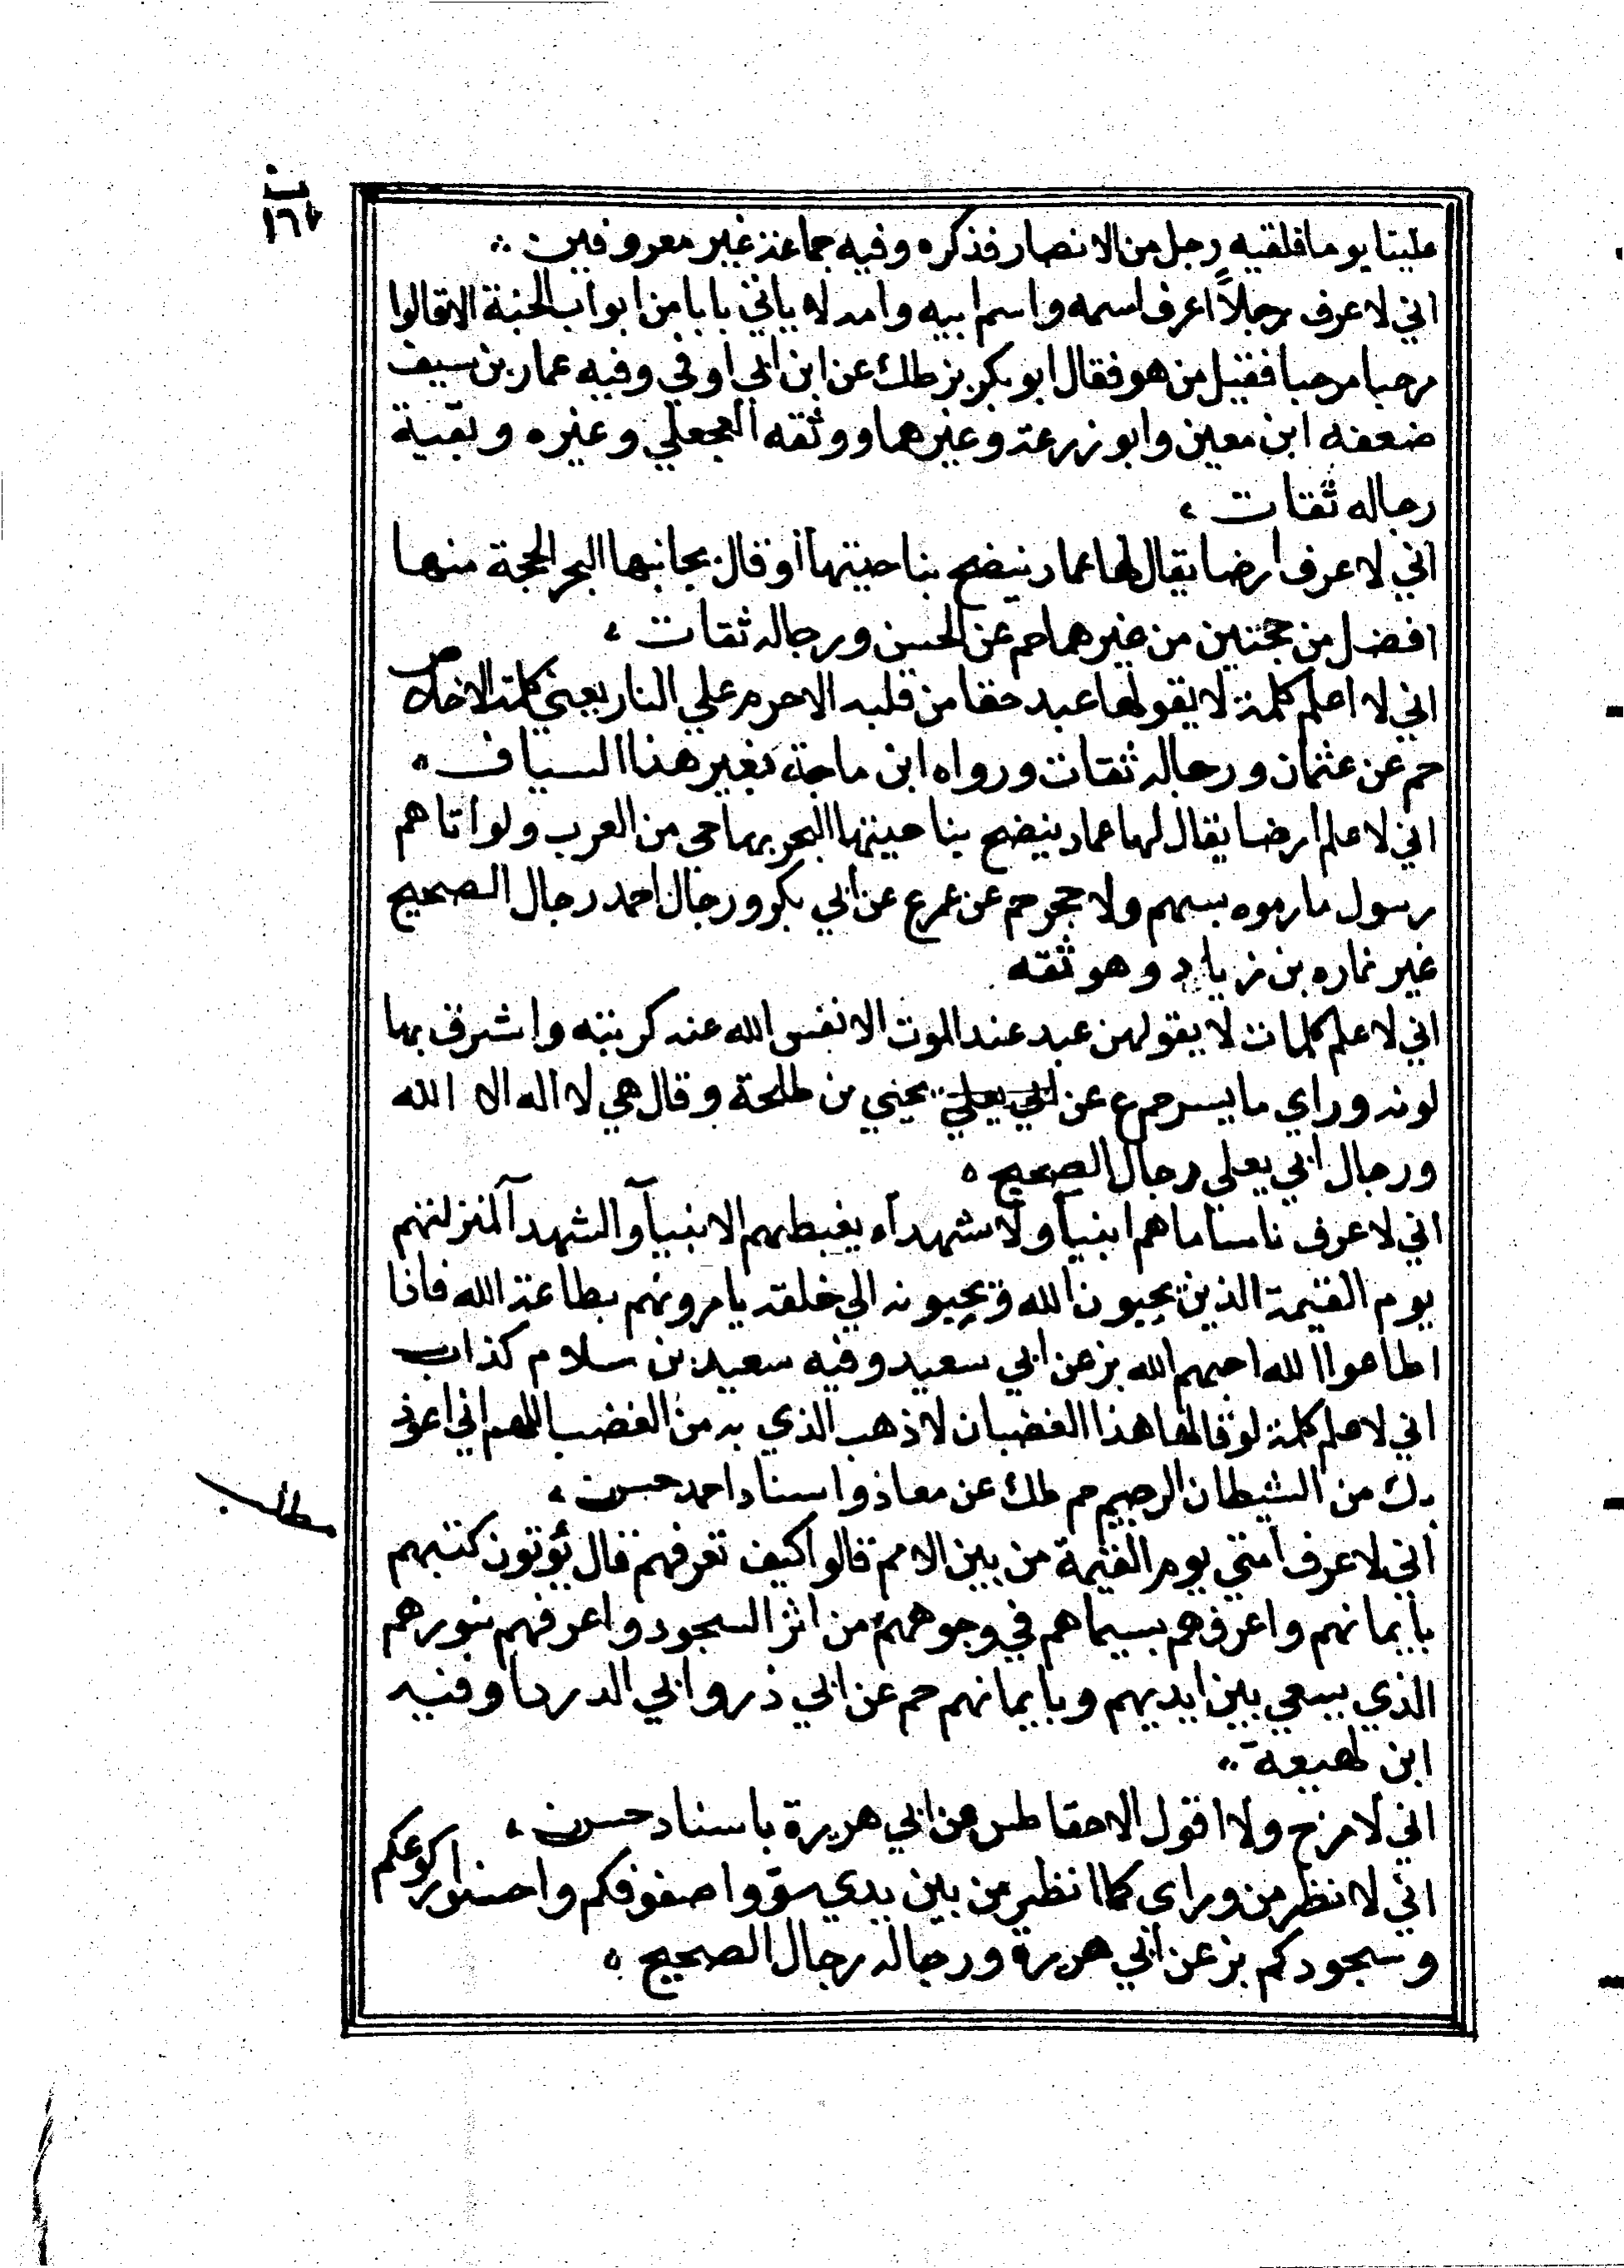 علينا يوما فلقيه رجل من الانصار فذكره وفيه جماعة غير معروفين
اني لاعرف رجلاً اعرف اسمه واسم ابيه وامه لا ياتي بابا من ابواب الجنة الا قالوا
مرحبا مرحبا فقيل من هو فقال ابو بكر بز طك عن ابن ابي اوفي وفيه عمار بن سيف
ضعفه ابن معين وابو زرعة وغيرهما ووثقه العجعلي وغيره وبقية
رجاله ثقات
اني لاعرف ارضا يقال لها عمان ينضح بناحيتها أو قال بجانبها البحر الحجة منها
افضل من حجتين من غيرها حم عن الحسن ورجاله ثقات
اني لا اعلم كلمة لا يقولها عبد حقا من قلبه الا حرم علي النار يعني كلمة الاخلاص
حم عن عثمان ورجاله ثقات ورواه ابن ماجة بغير هذا السياق
اني لاعلم ارضا يقال لها عمان ينضح بناحيتها البحر بها حي من العرب ولو اتاهم
رسول ما رموه بسهم ولا حجر حم عن عمر ع عن ابي بكر ورجال احمد رجال الصحيح
غير نماره بن زياد وهو ثقه
اني لاعلم كلمات لا يقولهن عبد عند الموت الا نفس الله عنه كربته واشرق بها
لونه وراي ما يسر حم ع عن ابي يعلي يحيي بن طلحة وقال هي لا اله الا الله
ورجال ابي يعلي رجال الصحيح
اني لاعرف ناسا ما هم انبيآ ولا شهدآء يغبطهم الانبيآ والشهدآ لمنزلتهم
يوم القيمة الذين يحبون الله ويحببونه الي خلقه يامرونهم بطاعة الله فاذا
اطاعوا الله احبهم الله بز عن ابي سعيد وفيه سعيد بن سلام كذاب
اني لاعلم كلمة لو قالها هذا الغضبان لاذهب الذي به من الغضب اللهم اني اعوذ
بك من الشيطان الرجيم حم طك عن معاذ واسناد احمد حسن
مطلب
اني لاعرف امتي يوم القيمة من بين الامم قالوا كيف تعرفهم قال يؤتون كتبهم
بايمانهم واعرفهم بسيماهم في وجوههم من اثر السجود واعرفهم بنورهم
الذي يسعي بين ايديهم وبايمانهم حم عن ابي ذر وابي الدردا وفيه
ابن لهيعة
اني لامزح ولا اقول الا حقا طس عن ابي هريرة باسناد حسن
اني لا نظر من وراي كما انظر من بين يدي سوّوا صفوفكم واحسنوا ركوعكم
وسجودكم بز عن ابي هريرة ورجاله رجال الصحيح